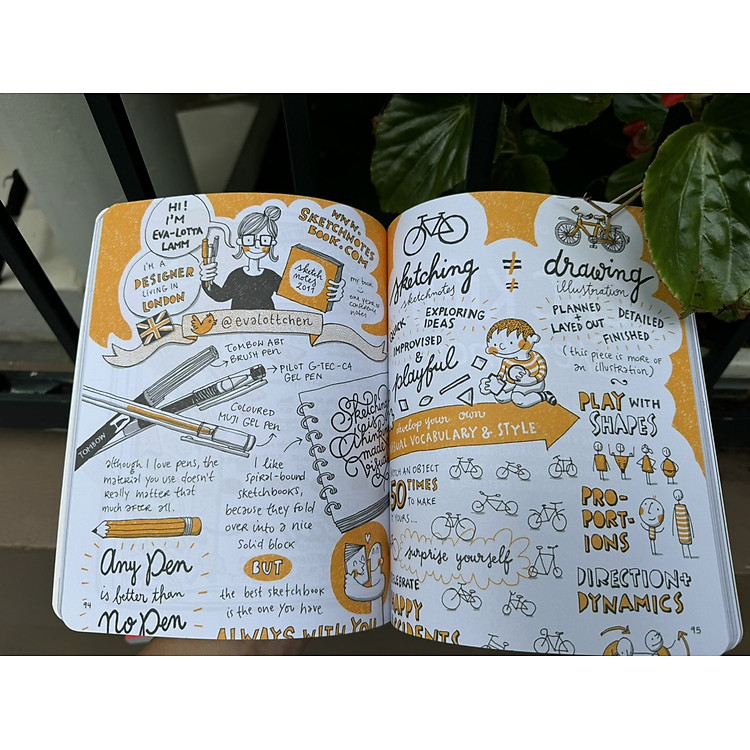 HI!
I'M
EVA-LOTTA
LAMM
I'M A
DESIGNER
LIVING IN
LONDON
WWW.
SKETCHNOTES
BOOK.COM
sketch
notes
2011
my book
one year of
conference
notes
@evalottchen
TOMBOW ABT
BRUSH PEN
PILOT G-TEC-C4
GEL PEN
COLOURED
MUJI GEL PEN
TOMBOW
although I love pens, the
material you use doesn't
really matter that
much after all.
Any Pen
is better than
No Pen
94
I like
spiral-bound
sketchbooks,
because they fold
over into a nice
solid block
BUT
the best sketchbook
is the one you have
ALWAYS WITH YOU
Sketching
is
thinking
made
sketching
sketchnotes
≠
=
drawing
illustration
QUICK
EXPLORING
IDEAS
IMPROVISED
&
playful
PLANNED
LAYED OUT
DETAILED
FINISHED
(this piece is more of
an illustration)
develop your own
VISUAL VOCABULARY & STYLE
AN OBJECT
50 TIMES
TO MAKE
YOURS...
surprise yourself
HAPPY
PLAY WITH
SHAPES
PRO-
PORT-
IONS
DIRECTION+
DYNAMICS
95